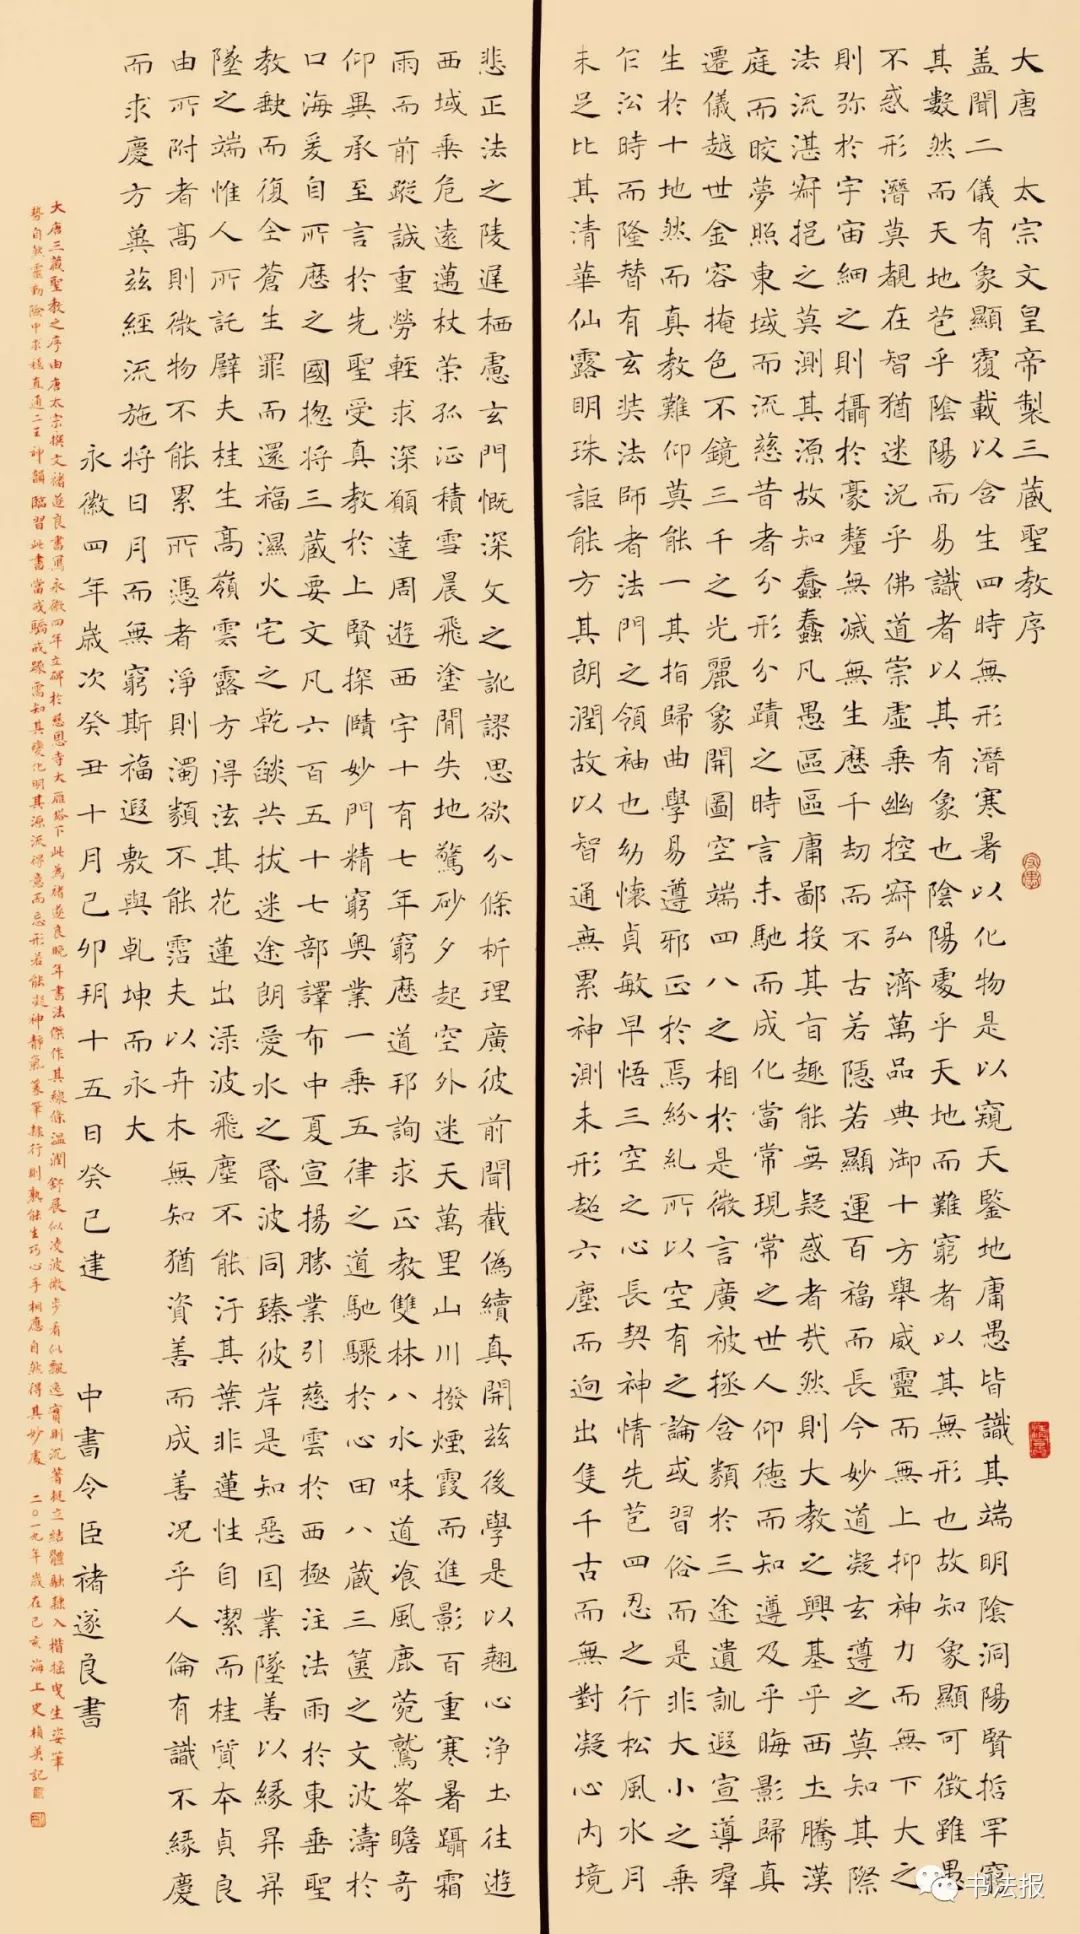 大唐 太宗文皇帝製三藏聖教序
盖聞二儀有象顯覆載以含生四時無形潛寒暑以化物是以窺天鑒地庸愚皆識其端明陰洞陽賢哲罕窮
其數然而天地苞乎陰陽而易識者以其有象也陰陽處乎天地而難窮者以其無形也故知象顯可徵雖愚
不惑形潛莫覩在智猶迷況乎佛道崇虛乘幽控寂弘濟萬品典御十方舉威靈而無上抑神力而無下大之
則弥於宇宙細之則攝於豪氂無滅無生歷千劫而不古若隱若顯運百福而長今妙道凝玄遵之莫知其際
法流湛寂挹之莫測其源故知蠢蠢凡愚區區庸鄙投其旨趣能無疑惑者哉然則大教之興基乎西土騰漢
庭而皎夢照東域而流慈昔者分形分蹟之時言未馳而成化當常現常之世人仰德而知遵及乎晦影歸真
遷儀越世金容掩色不鏡三千之光麗象開圖空端四八之相於是微言廣被拯含類於三途遺訓遐宣導羣
生於十地然而真教難仰莫能一其指歸曲學易遵邪正於焉紛糺所以空有之論或習俗而是非大小之乘
乍沿時而隆替有玄奘法師者法門之領袖也幼懷貞敏早悟三空之心長契神情先苞四忍之行松風水月
未足比其清華仙露明珠詎能方其朗潤故以智通無累神測未形超六塵而迥出隻千古而無對凝心内境
悲正法之陵遲栖慮玄門慨深文之訛謬思欲分條析理廣彼前聞截偽續真開茲後學是以翹心浄土往遊
西域乘危遠邁杖榮孤征積雪晨飛塗閒失地驚砂夕起空外迷天萬里山川撥煙霞而進影百重寒暑躡霜
雨而前蹤誠重勞輕求深願達周遊西宇十有七年窮歷道邦詢求正教雙林八水味道飡風鹿菀鷲峯瞻奇
仰異承至言於先聖受真教於上賢探賾妙門精窮奥業一乘五律之道馳驟於心田八藏三篋之文波濤於
口海爰自所歷之國揔將三藏要文凡六百五十七部譯布中夏宣揚勝業引慈雲於西極注法雨於東垂聖
教缺而復全蒼生罪而還福濕火宅之乾燄共拔迷途朗愛水之昏波同臻彼岸是知惡因業墜善以緣昇昇
墜之端惟人所託譬夫桂生高嶺雲露方得泫其花蓮出淥波飛塵不能汙其葉非蓮性自潔而桂質本貞良
由所附者高則微物不能累所憑者淨則濁類不能霑夫以卉木無知猶資善而成善况乎人倫有識不緣慶
而求慶方冀茲經流施將日月而無窮斯福遐敷與乾坤而永大
永徽四年歲次癸丑十月己卯朔十五日癸巳建 中書令臣褚遂良書
大唐三藏聖教之序由唐太宗撰文褚遂良書寫永徽四年立碑於慈恩寺大雁塔下此為褚遂良晚年書法傑作其線條溫潤舒展似凌波微步看似飄逸實則沉著挺立結體融隸入楷搖曳生姿筆
勢自然靈動險中求穩直通二王神韻臨習此書當戒驕戒躁需知其變化明其源流得意而忘形若能凝神靜氣篆筆隸行則熟能生巧心手相應自然得其妙處 二〇一九年歲在己亥海上史楨英記
书法报